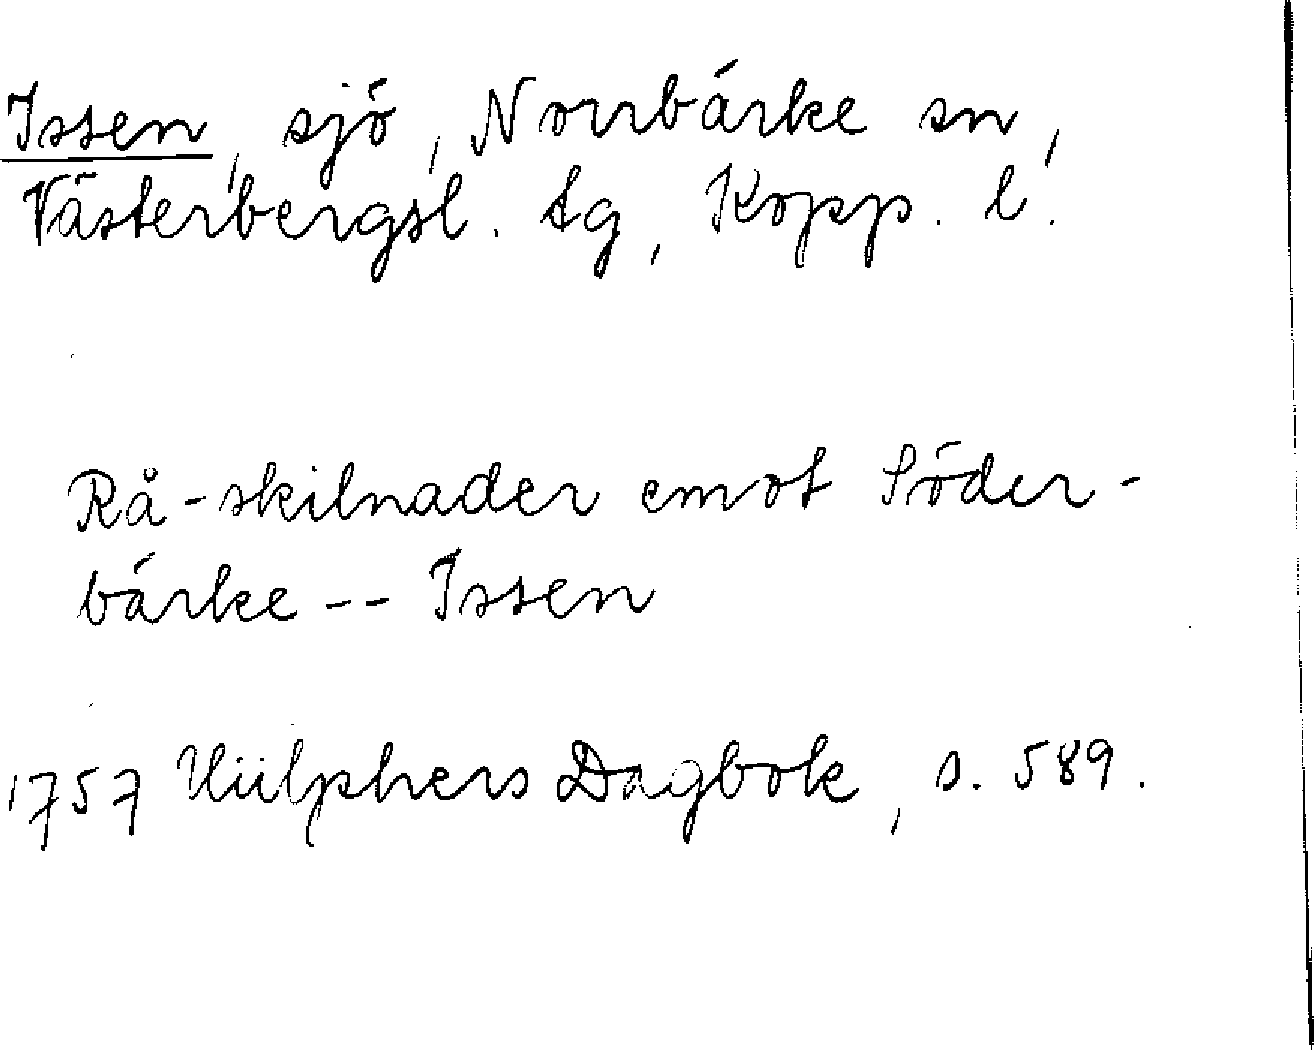 Issen, sjö, Norrbärke sn,
Västerbergsl. tg, Kopp. l.
Rå-skilnader emot Söder-
bärke -- Issen
1757 Hülphers Dagbok, s. 589.